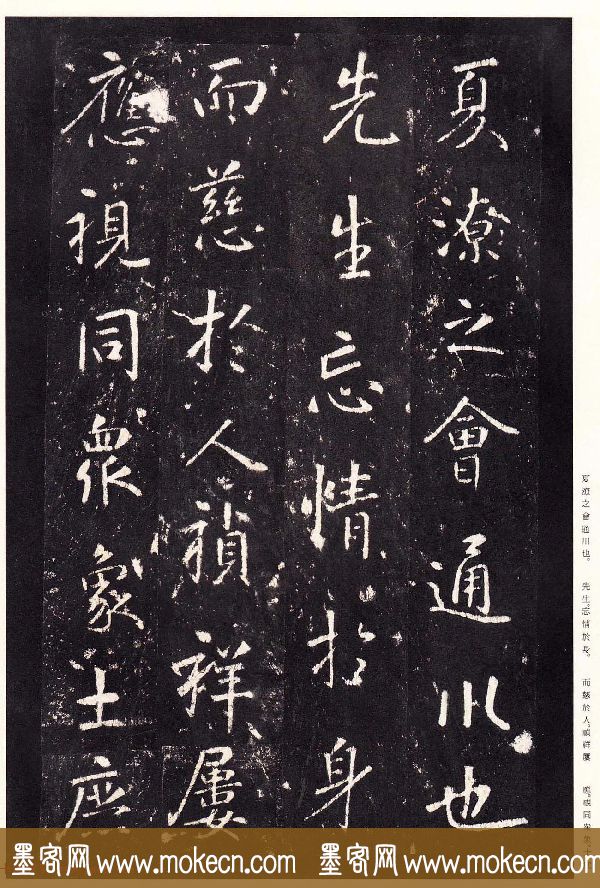 夏潦之會通川也
先生忘情於身
而慈於人禎祥屢
應視同衆象土座
夏潦之會通川也。 先生忘情於 而慈於人禎祥屢 視同
墨客网 www.mokecn.com 墨客网 www.mokecn.com